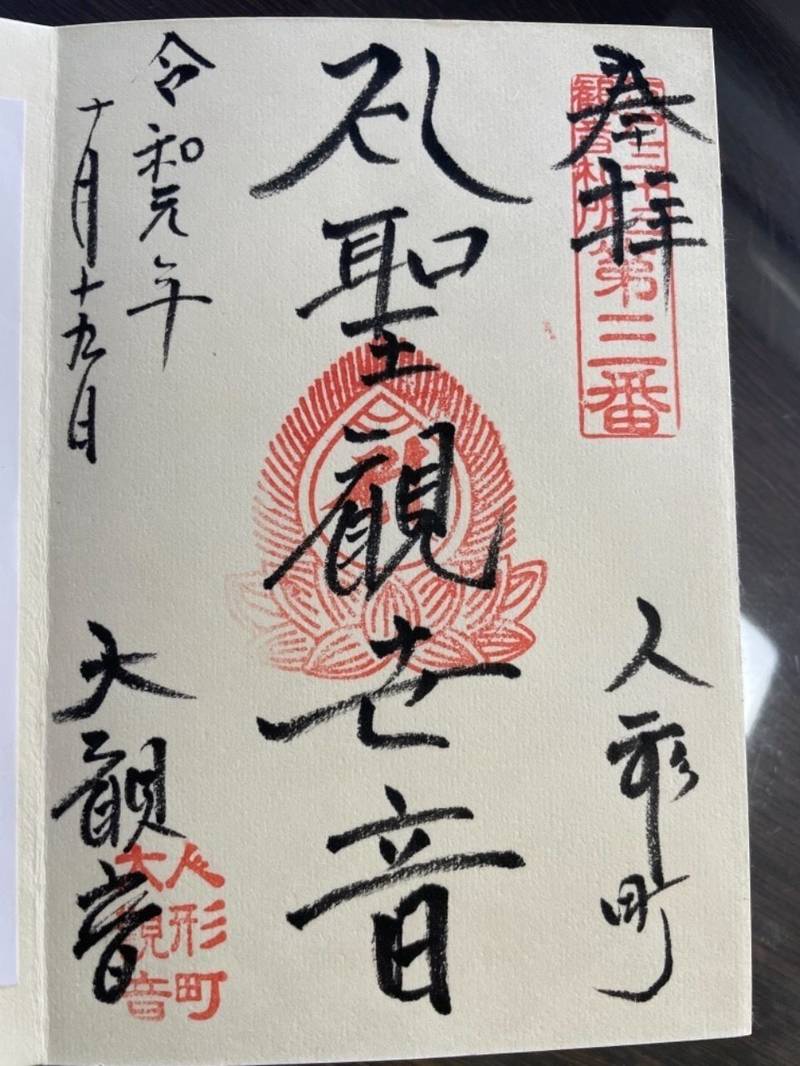 奉拝
観音札所
第三番
人形町
聖観世音
令和元年
十月十九日
大観音
人形町
大観音